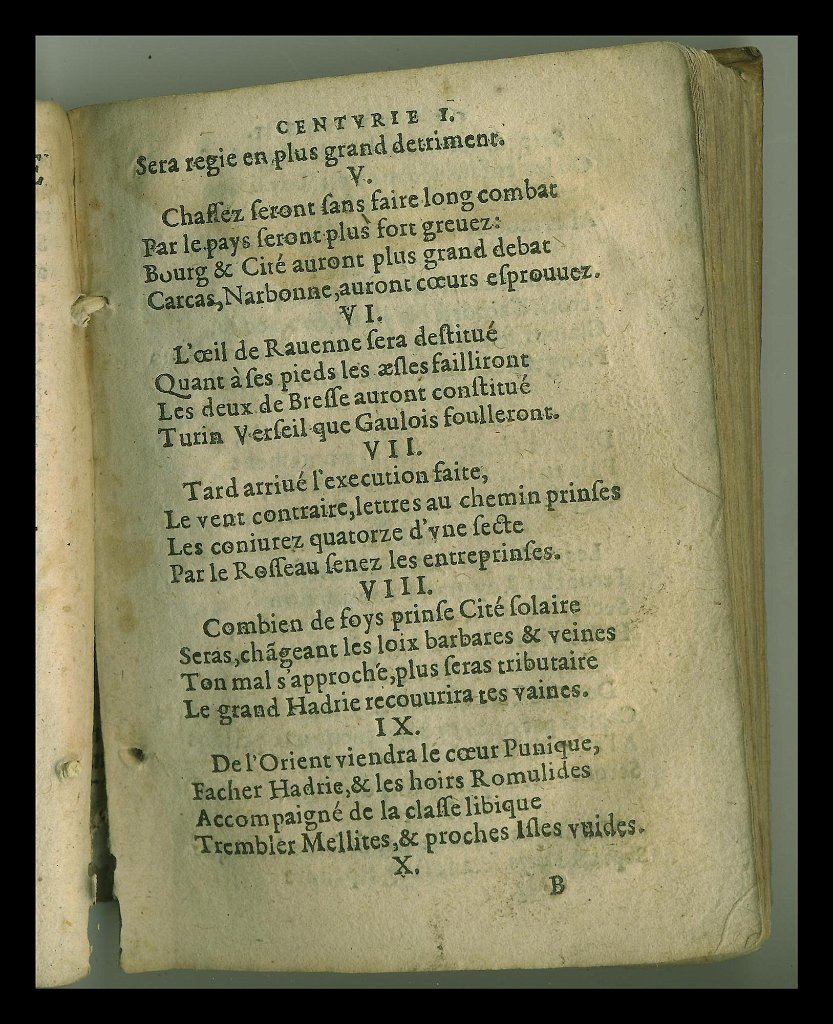 CENTVRIE I.
Sera regie en plus grand detriment.
V.
Chaſſez ſeront ſans faire long combat
Par le pays ſeront plus fort greuez:
Bourg & Cité auront plus grand debat
Carcas, Narbonne, auront cœurs eſprouuez.
VI.
L'œil de Rauenne ſera deſtitué
Quant à ſes pieds les æſles failliront
Les deux de Breſſe auront conſtitué
Turin Verſeil que Gaulois foulleront.
VII.
Tard arriué l'execution faite,
Le vent contraire, lettres au chemin prinſes
Les coniurez quatorze d'vne ſecte
Par le Roſſeau ſenez les entreprinſes.
VIII.
Combien de foys prinſe Cité ſolaire
Seras, chãgeant les loix barbares & veines
Ton mal s'approche, plus ſeras tributaire
Le grand Hadrie recouurira tes vaines.
IX.
De l'Orient viendra le cœur Punique,
Facher Hadrie, & les hoirs Romulides
Accompaigné de la claſſe libique
Trembler Mellites, & proches Iſles vuides.
X.
B